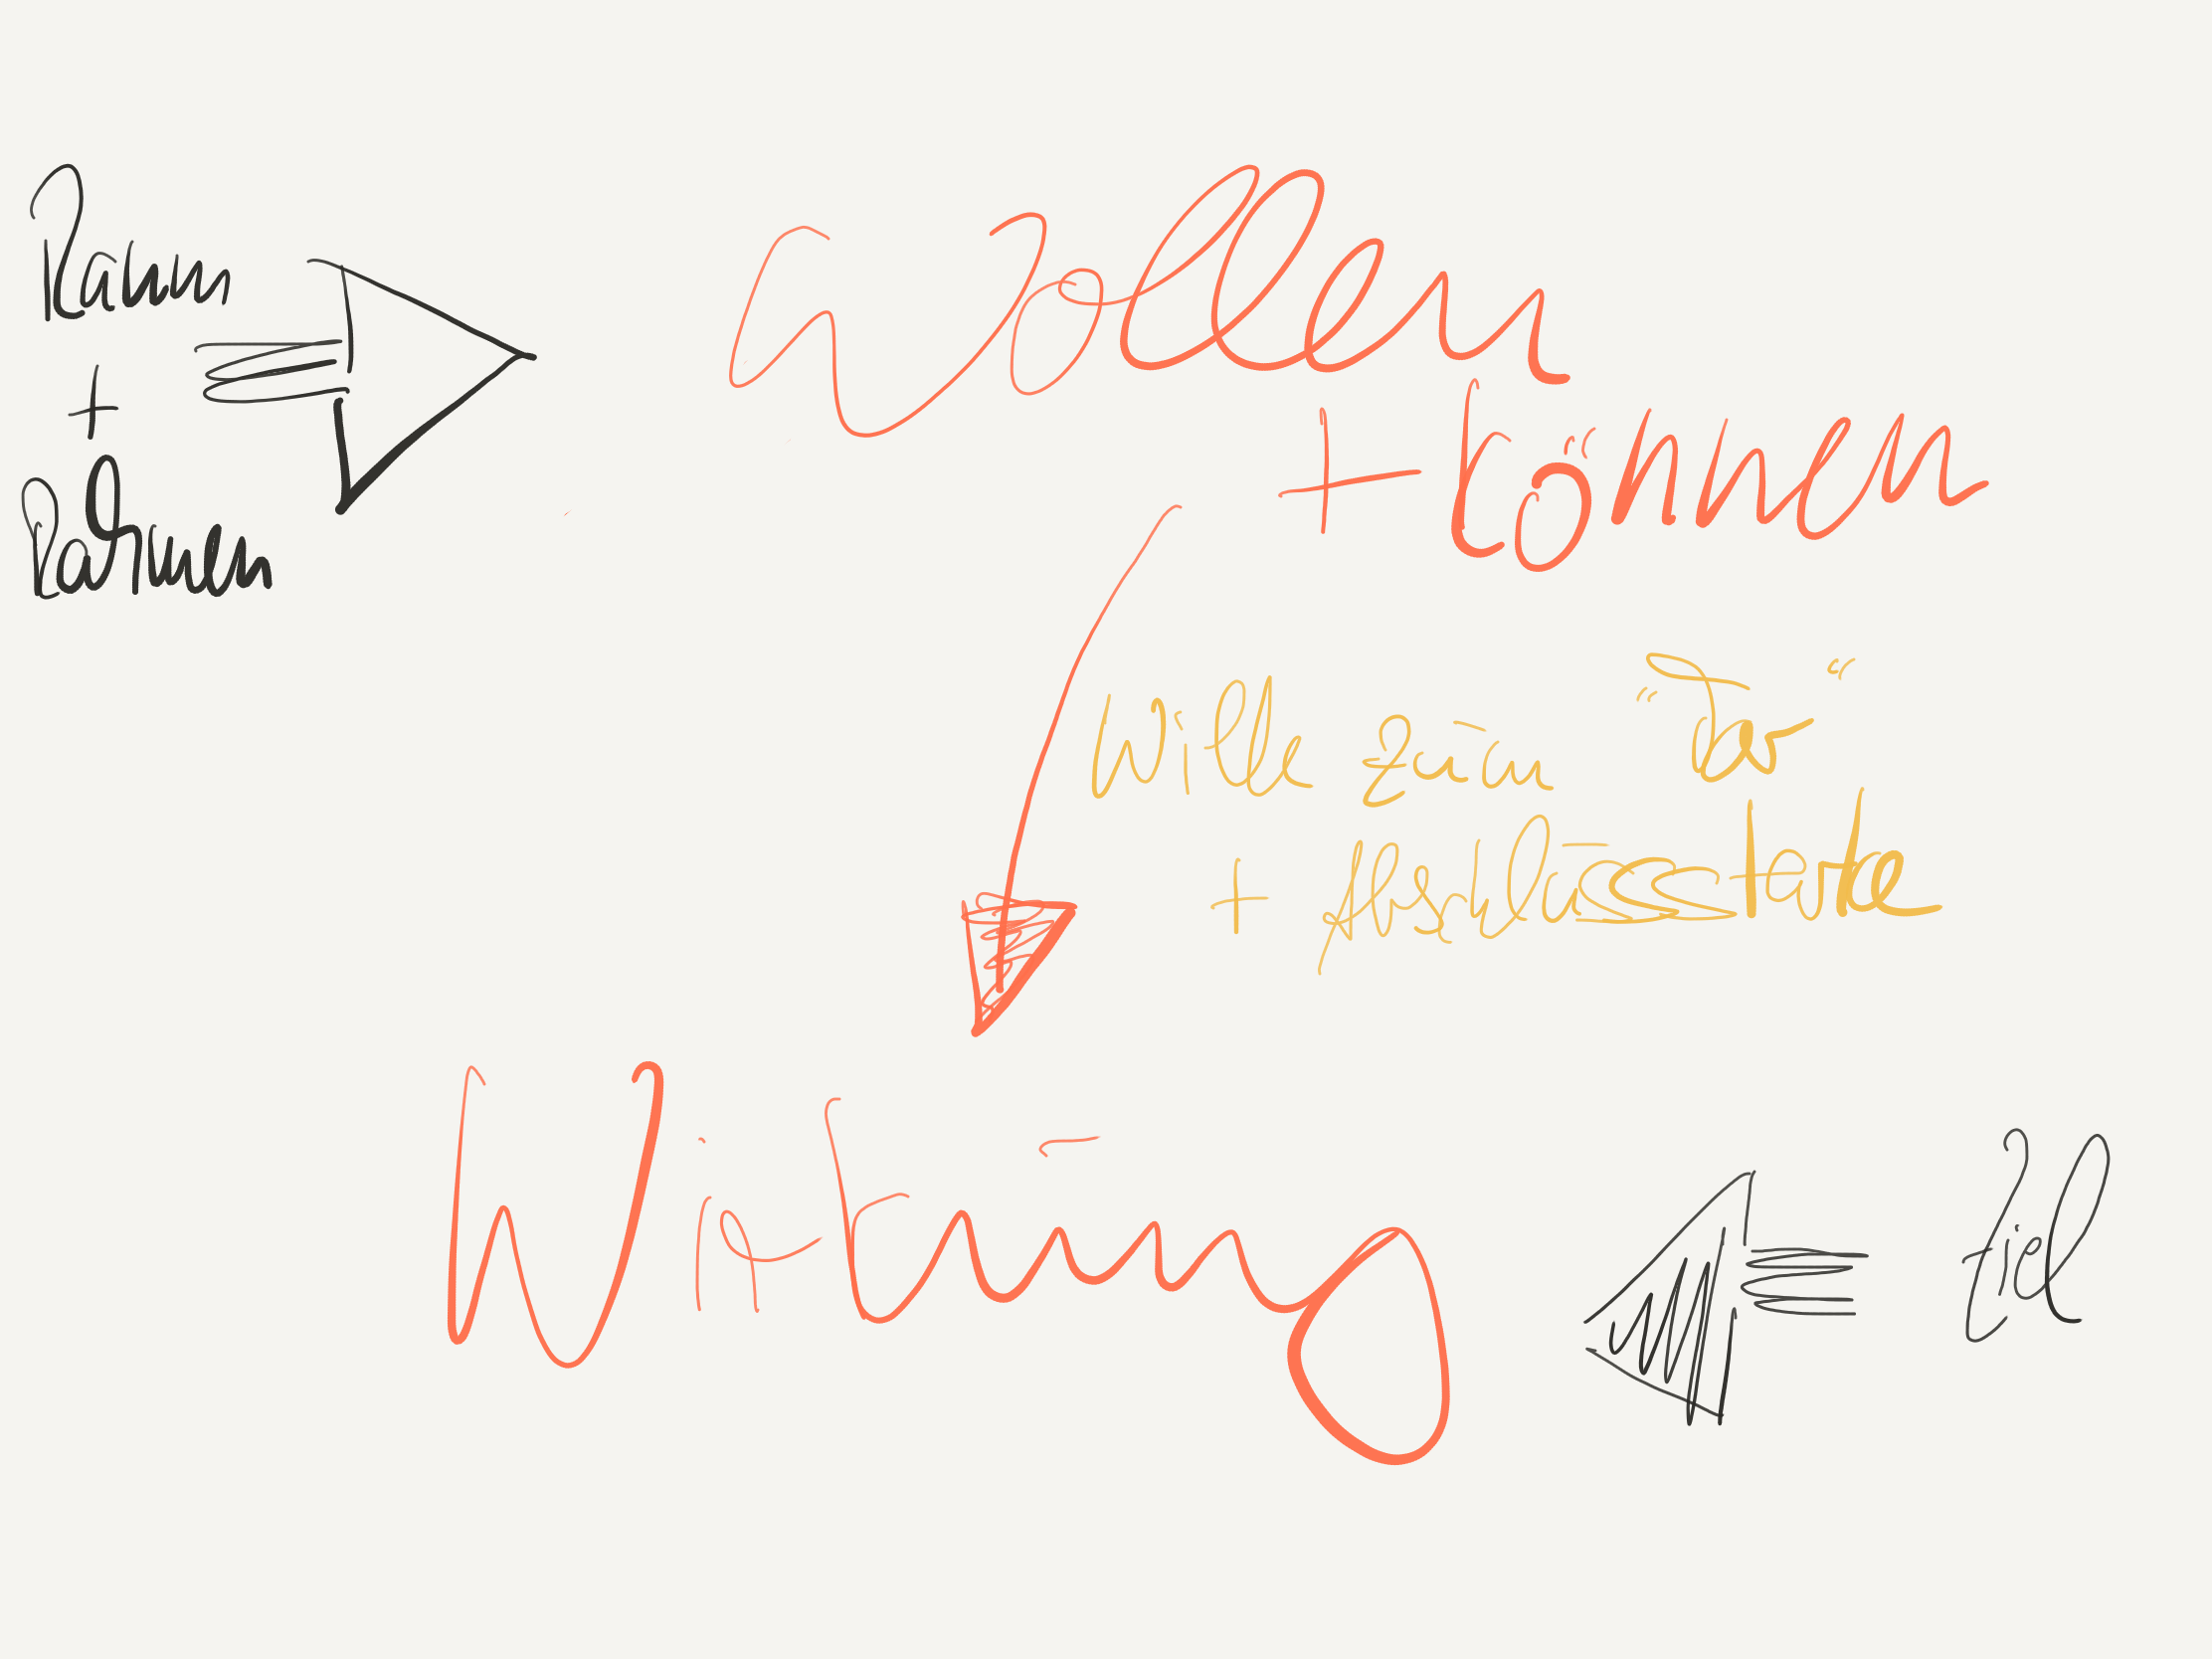 Raum
+
Rahmen
Wollen
+ können
Wille zum "Tor"
+ Abschlussstärke
Wirkung
Ziel